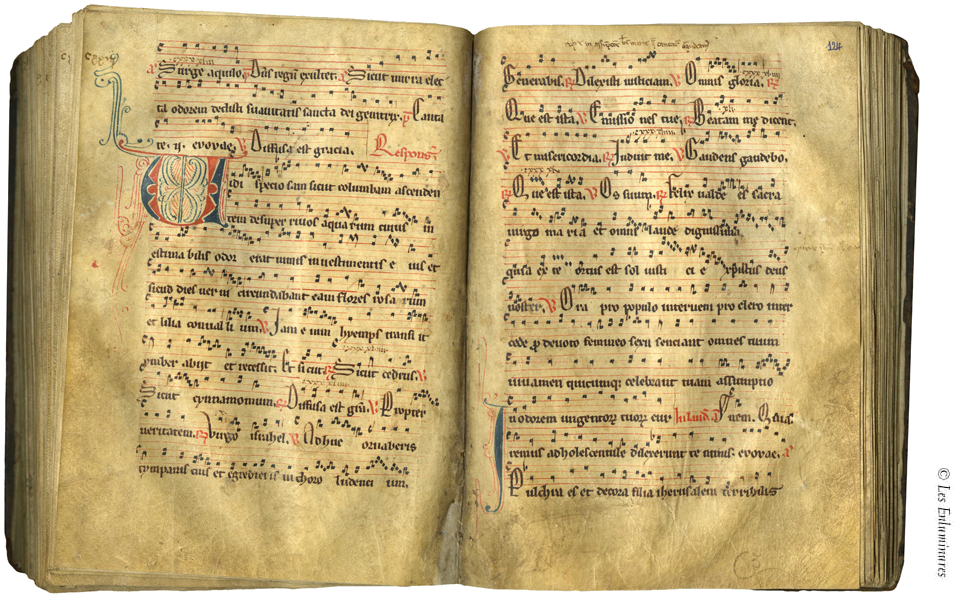 Surge aquilo. Dās regū exultet. Sicut mirra elec
ta odorem dedisti suavitatis sancta dei genitrix. Canta
te. ij. evovae. Diffusa est gracia. Respons
Vidi speciosam sicut columbam ascenden
tem desuper rivos aquarum cuius in
estima bilis odor erat nimis in vestimentis e ius et
sicud dies ver ni circumdabant eam flores rosa rum
et lilia conval li um. Iam e nim hyemps transi it
ymber abiit et recessit. Et sicut. Sicut cedrus.
Sicut cynnamomum. Diffusa est grā. Propter
veritatem. Virgo israhel. Adhuc ornaberis
tympanis tuis et egredieris in choro ludenci um.
124
Generabis. Dilexisti iusticiam. Omnis gloria.
Que est ista. Emissio nes tue. Beatam me dicent.
Et misericordia. Induit me. Gaudens gaudebo.
Que est ista. Os suum. Felix valde es sacra
virgo ma ri a et omni laude dignissima
quia ex te ortus est sol iusti ci e xpistus deus
noster. Ora pro populo interveni pro clero inter
cede p devoto femineo sexu senciant omnes tuum
iuvamen quicumq; celebrant tuam assumptio
nem. Quia.
In odorem ungentorum tuorum cur
remus adholescentule dilexerunt te nimis. evovae. a
Pulchra es et decora filia iherusalem terribilis
© Les Enluminures